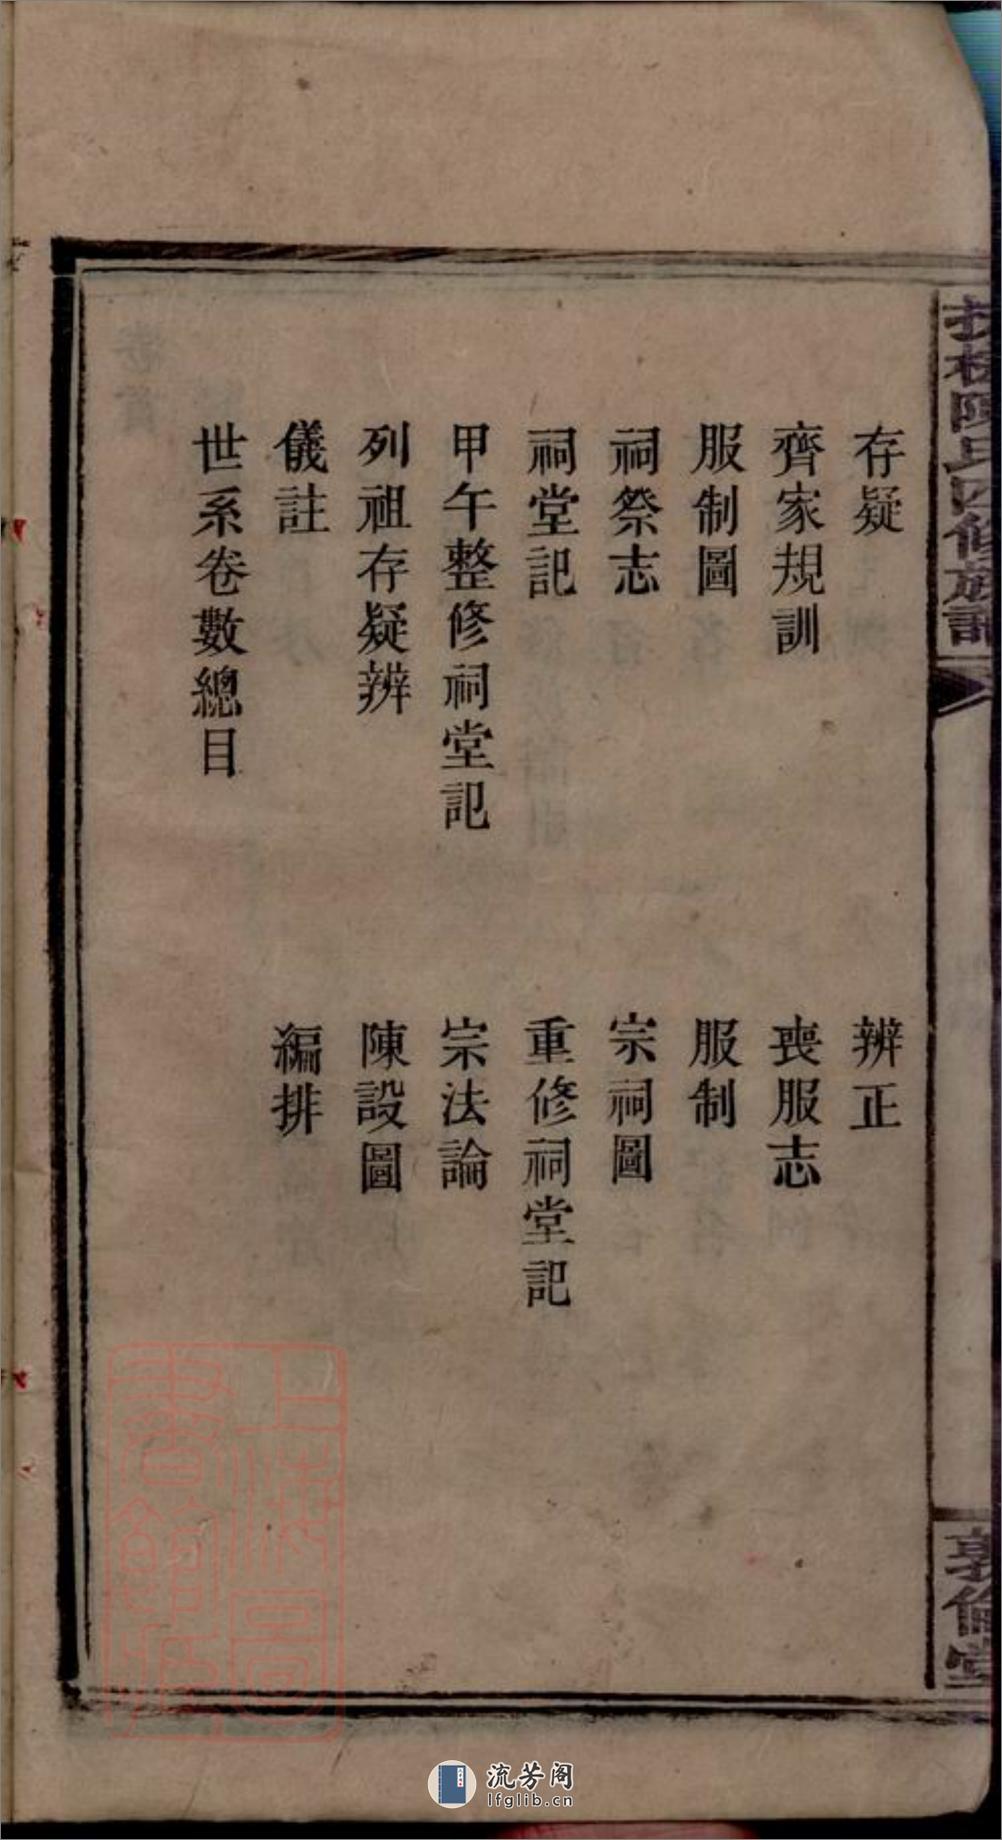 存疑
辨正
齊家規訓
喪服志
服制圖
服制
祠祭志
宗祠圖
祠堂記
重修祠堂記
甲午整修祠堂記
宗法論
列祖存疑辨
陳設圖
儀註
編排
世系卷數總目
陳氏四修族譜
敦倫堂
上海圖書館藏
流芳阁
lfglib.cn